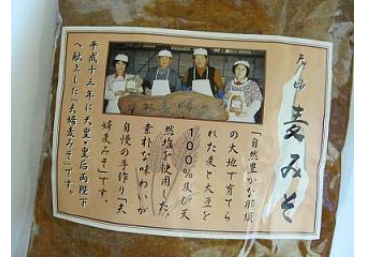 夫婦
麦みそ
「自然豊かな耶馬
の大地で育てら
れた麦と大豆を
100%及び天
然塩を使用した、
素朴な味わいが
自慢の手作り「夫
婦麦みそ」です。
平成十三年に天皇・皇后両陛下
へ献上した「夫婦麦みそ」です。